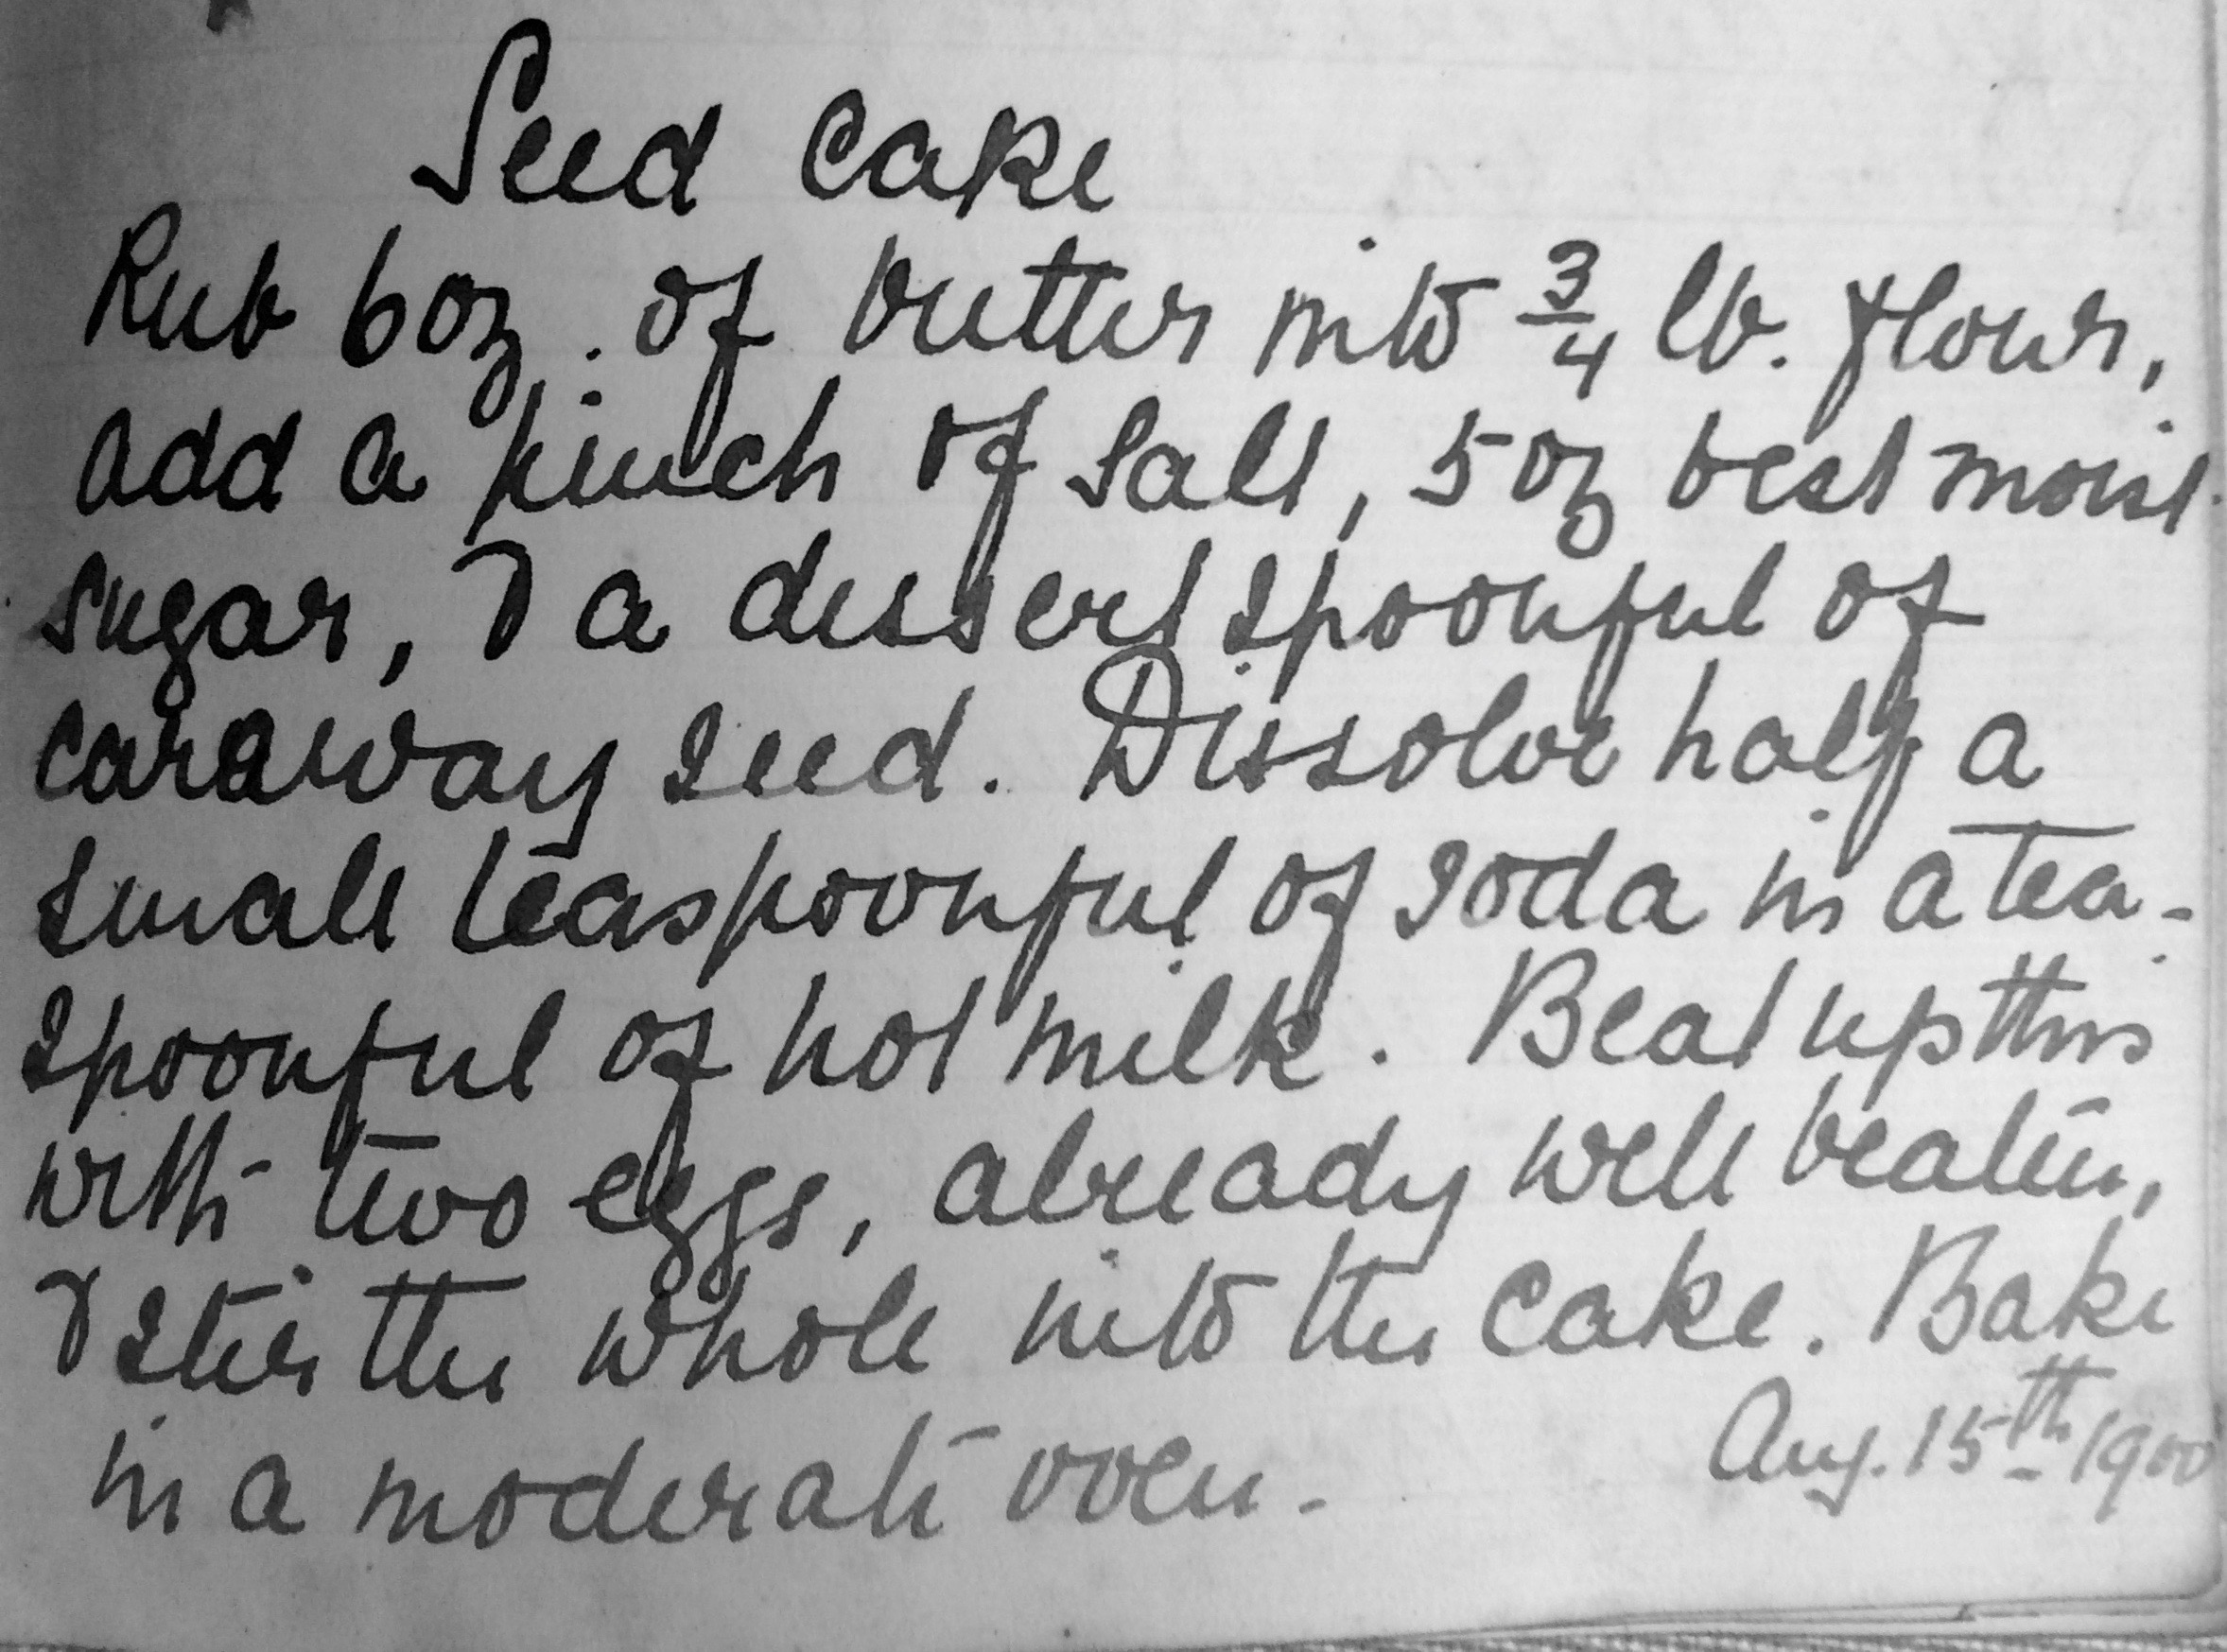 Seed Cake
Rub 6oz. of butter into 3/4 lb. flour,
add a pinch of salt, 5oz best moist
sugar, & a dessert spoonful of
caraway seed. Dissolve half a
small teaspoonful of soda in a tea-
spoonful of hot milk. Beat up this
with two eggs, already well beaten,
& stir the whole into the cake. Bake
in a moderate oven.
Aug. 15th 1900